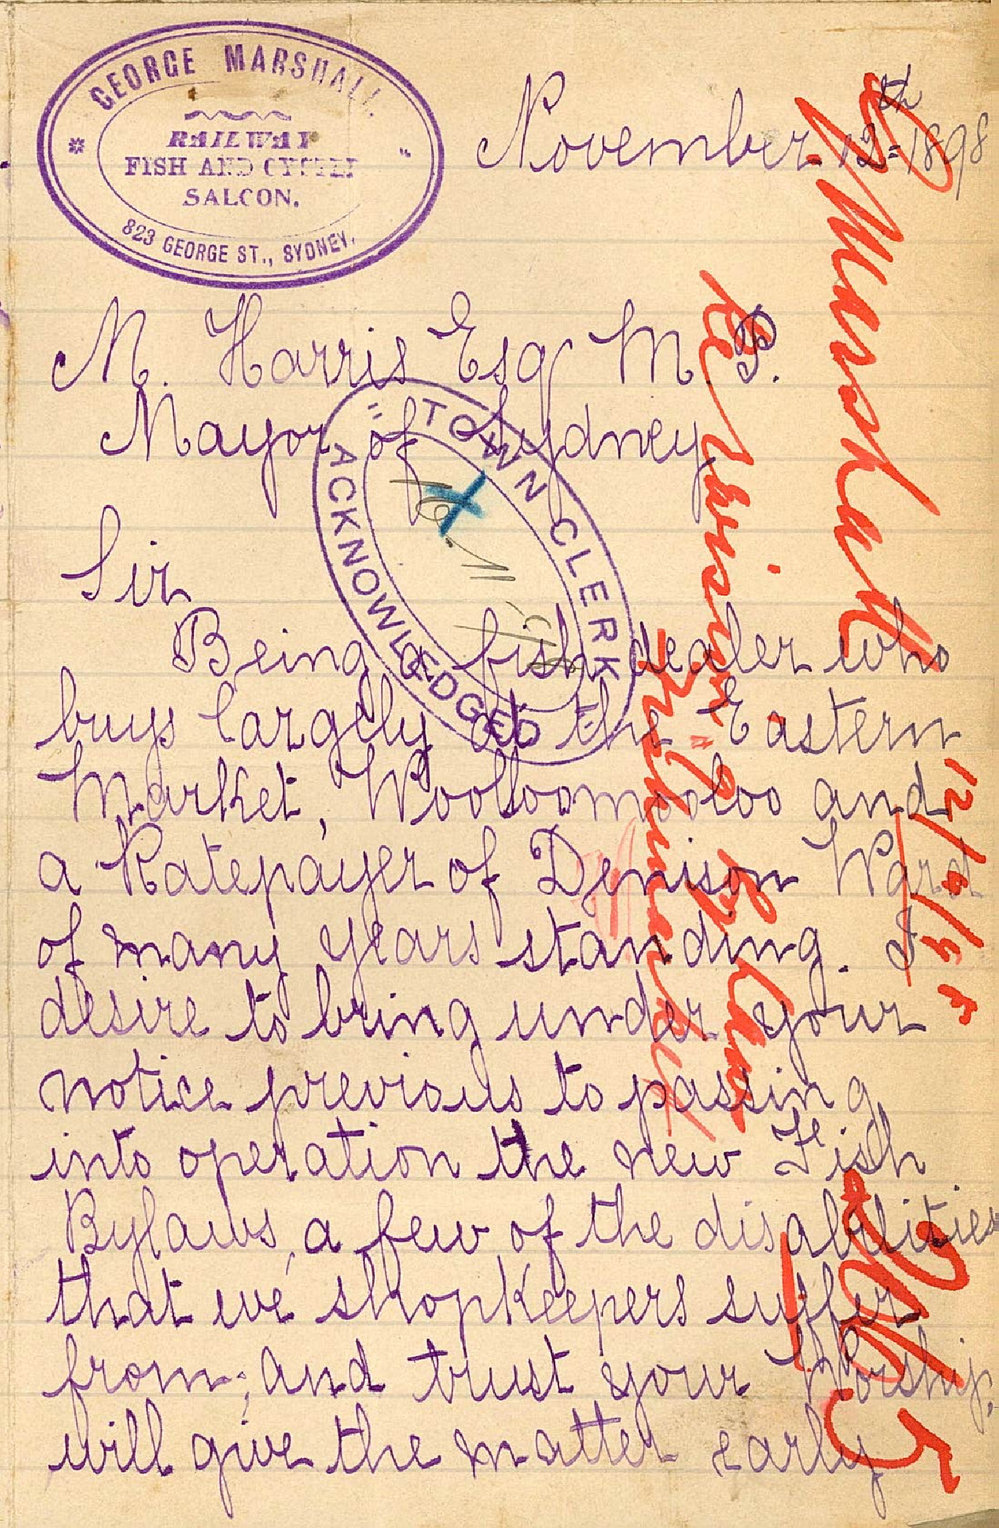 GEORGE MARSHALL
RAILWAY
FISH AND OYSTER
SALOON.
823 GEORGE ST., SYDNEY.
November 12th 1898
M. Harris Esq M.P.
Mayor of Sydney
Sir
Being a fish dealer who
buys largely at the Eastern
Market, Woolloomooloo and
a Ratepayer of Denison Ward
of many years standing. I
desire to bring under your
notice previous to passing
into operation the new Fish
Bylaws, a few of the disabilities
that we shopkeepers suffer
from; and trust your Worship,
will give the matter early
"TOWN CLERK"
ACKNOWLEDGED
16.11.98
G Marshall
re revision of bylaws
Fishmarket